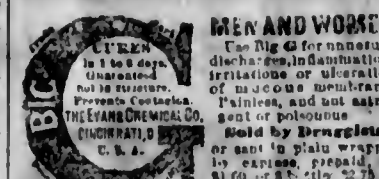 BIG
CURES
in 1 to 5 days.
Guaranteed
not to stricture.
Prevents Contagion.
THE EVANS CHEMICAL CO.
CINCINNATI, O
U. S. A.
MEN AND WOME
Use Big G for unnatu
discharges, inflammatio
irritations or ulcerati
of mucous membran
Painless, and not astr
gent or poisonous
Sold by Druggists
or sent in plain wrapp
by express, prepaid